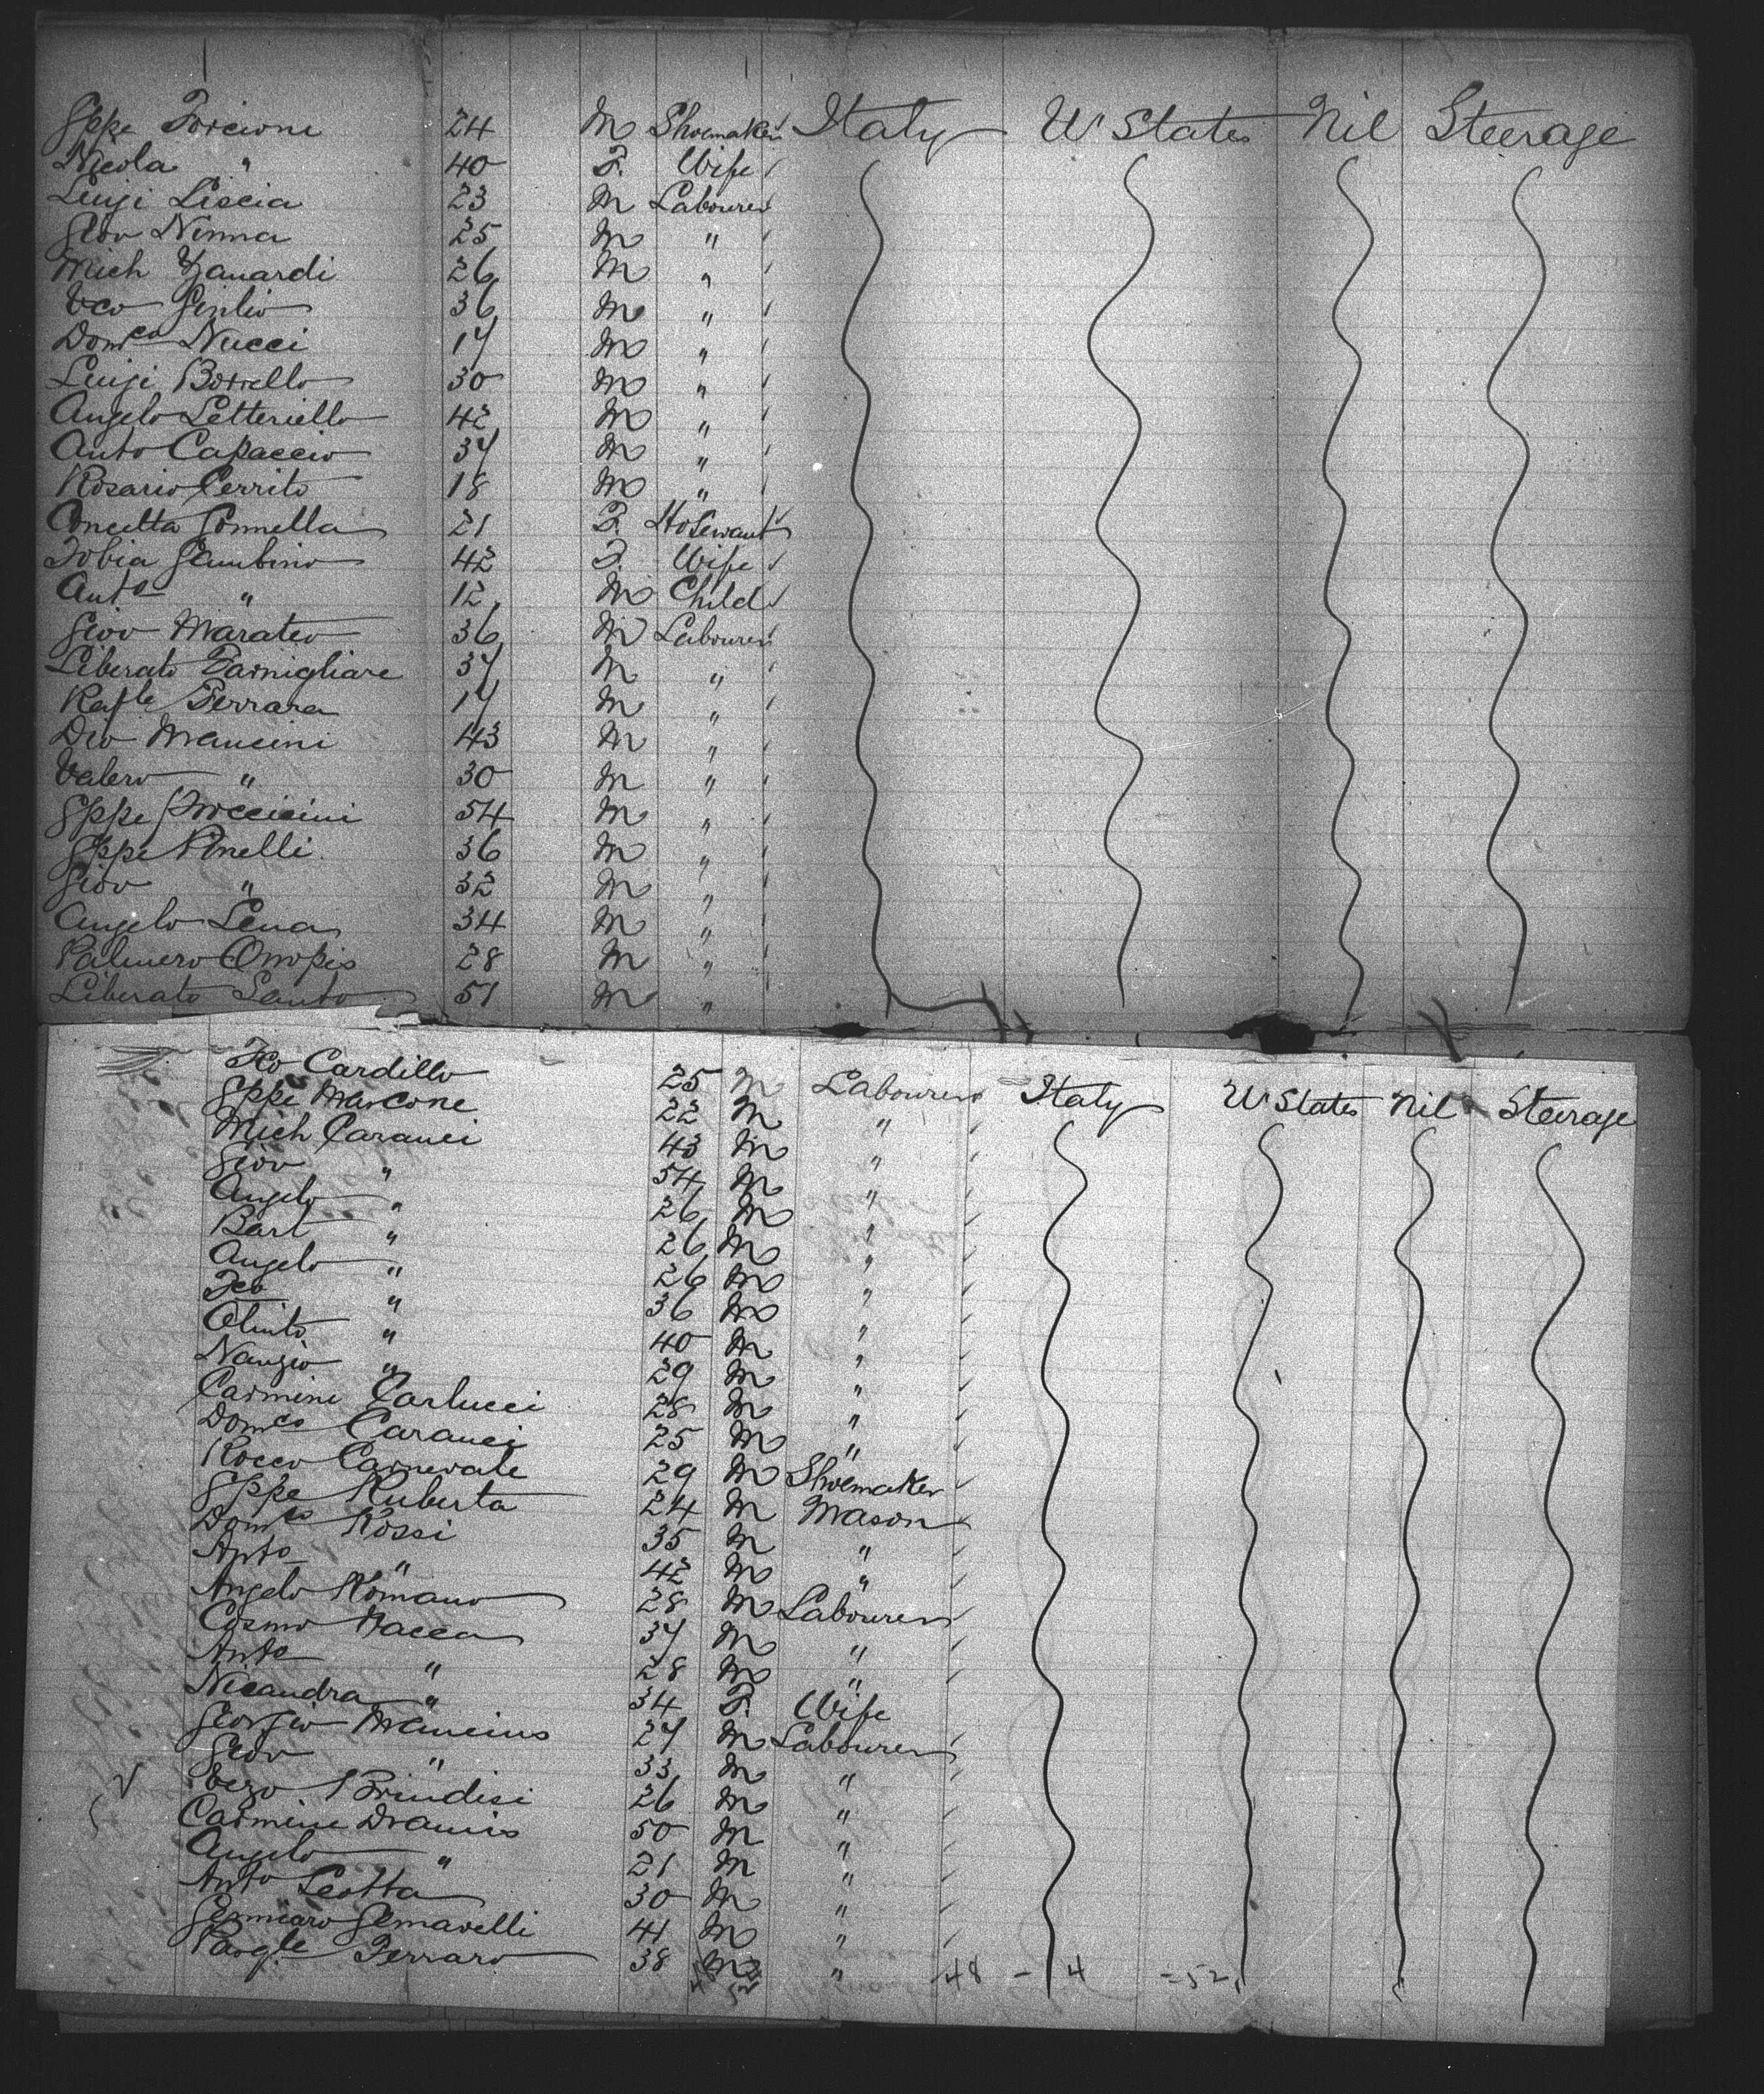 Gppe Forcione 24 M Shoemaker Italy U States Nil Steerage
Nicola " 40 F. Wife
Luigi Liscia 23 M Labourer
Giov Ninna 25 M "
Mich Zanardi 26 M "
Vco Genlio 36 M "
Domco Nucci 17 M "
Luigi Borrello 30 M "
Angelo Letteriello 42 M "
Anto Capaccio 37 M "
Rosario Cerrito 18 M "
Concetta Gonnella 21 F. HoServant
Tobia Gambino 42 F. Wife
Anto " 12 M Child
Giov Marateo 36 M Labourer
Liberato Farnigliare 37 M "
Rafle Ferrara 17 M "
Dio Mancini 43 M "
Valero " 30 M "
Gppe 54 M "
Gppe Pinelli 36 M "
Giov " 32 M "
Angelo Lena 34 M "
Palmero Onopis 28 M "
Liberato Santo 51 M "
Fco Cardillo 25 M Labourer Italy U States Nil Steerage
Gppe Marcone 22 M "
Mich Caranci 43 M "
Giov " 54 M "
Angelo " 26 M "
Bart " 26 M "
Angelo " 26 M "
Fco " 36 M "
Olinto " 40 M "
Nanzio " 29 M "
Carmine Carlucci 28 M "
Domco Caranci 25 M "
Rocco Carnevale 29 M Shoemaker
Gppe Ruberta 24 M Mason
Domco Rossi 35 M "
Anto " 42 M "
Angelo Romano 28 M Labourer
Cosmo Vacca 37 M "
Anto " 28 M "
Nicandra " 34 F. Wife
Giorgio Mancino 27 M Labourer
Giov " 33 M "
Vczo Brindisi 26 M "
Carmine Dramis 50 M "
Angelo " 21 M "
Anto Leotta 30 M "
Gennaro Gemarelli 41 M "
Pasqle Ferraro 38 M " 48 - 4 = 52